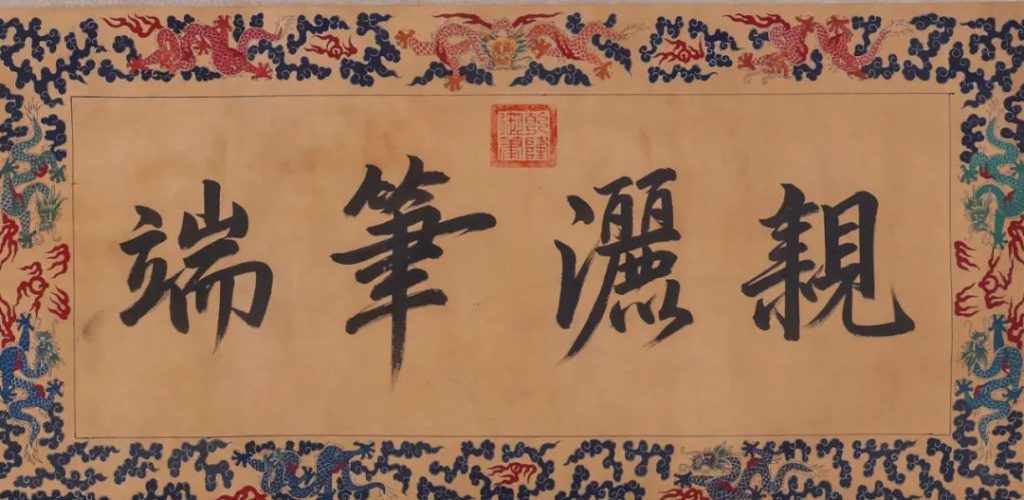 乾隆御筆
親灑筆端